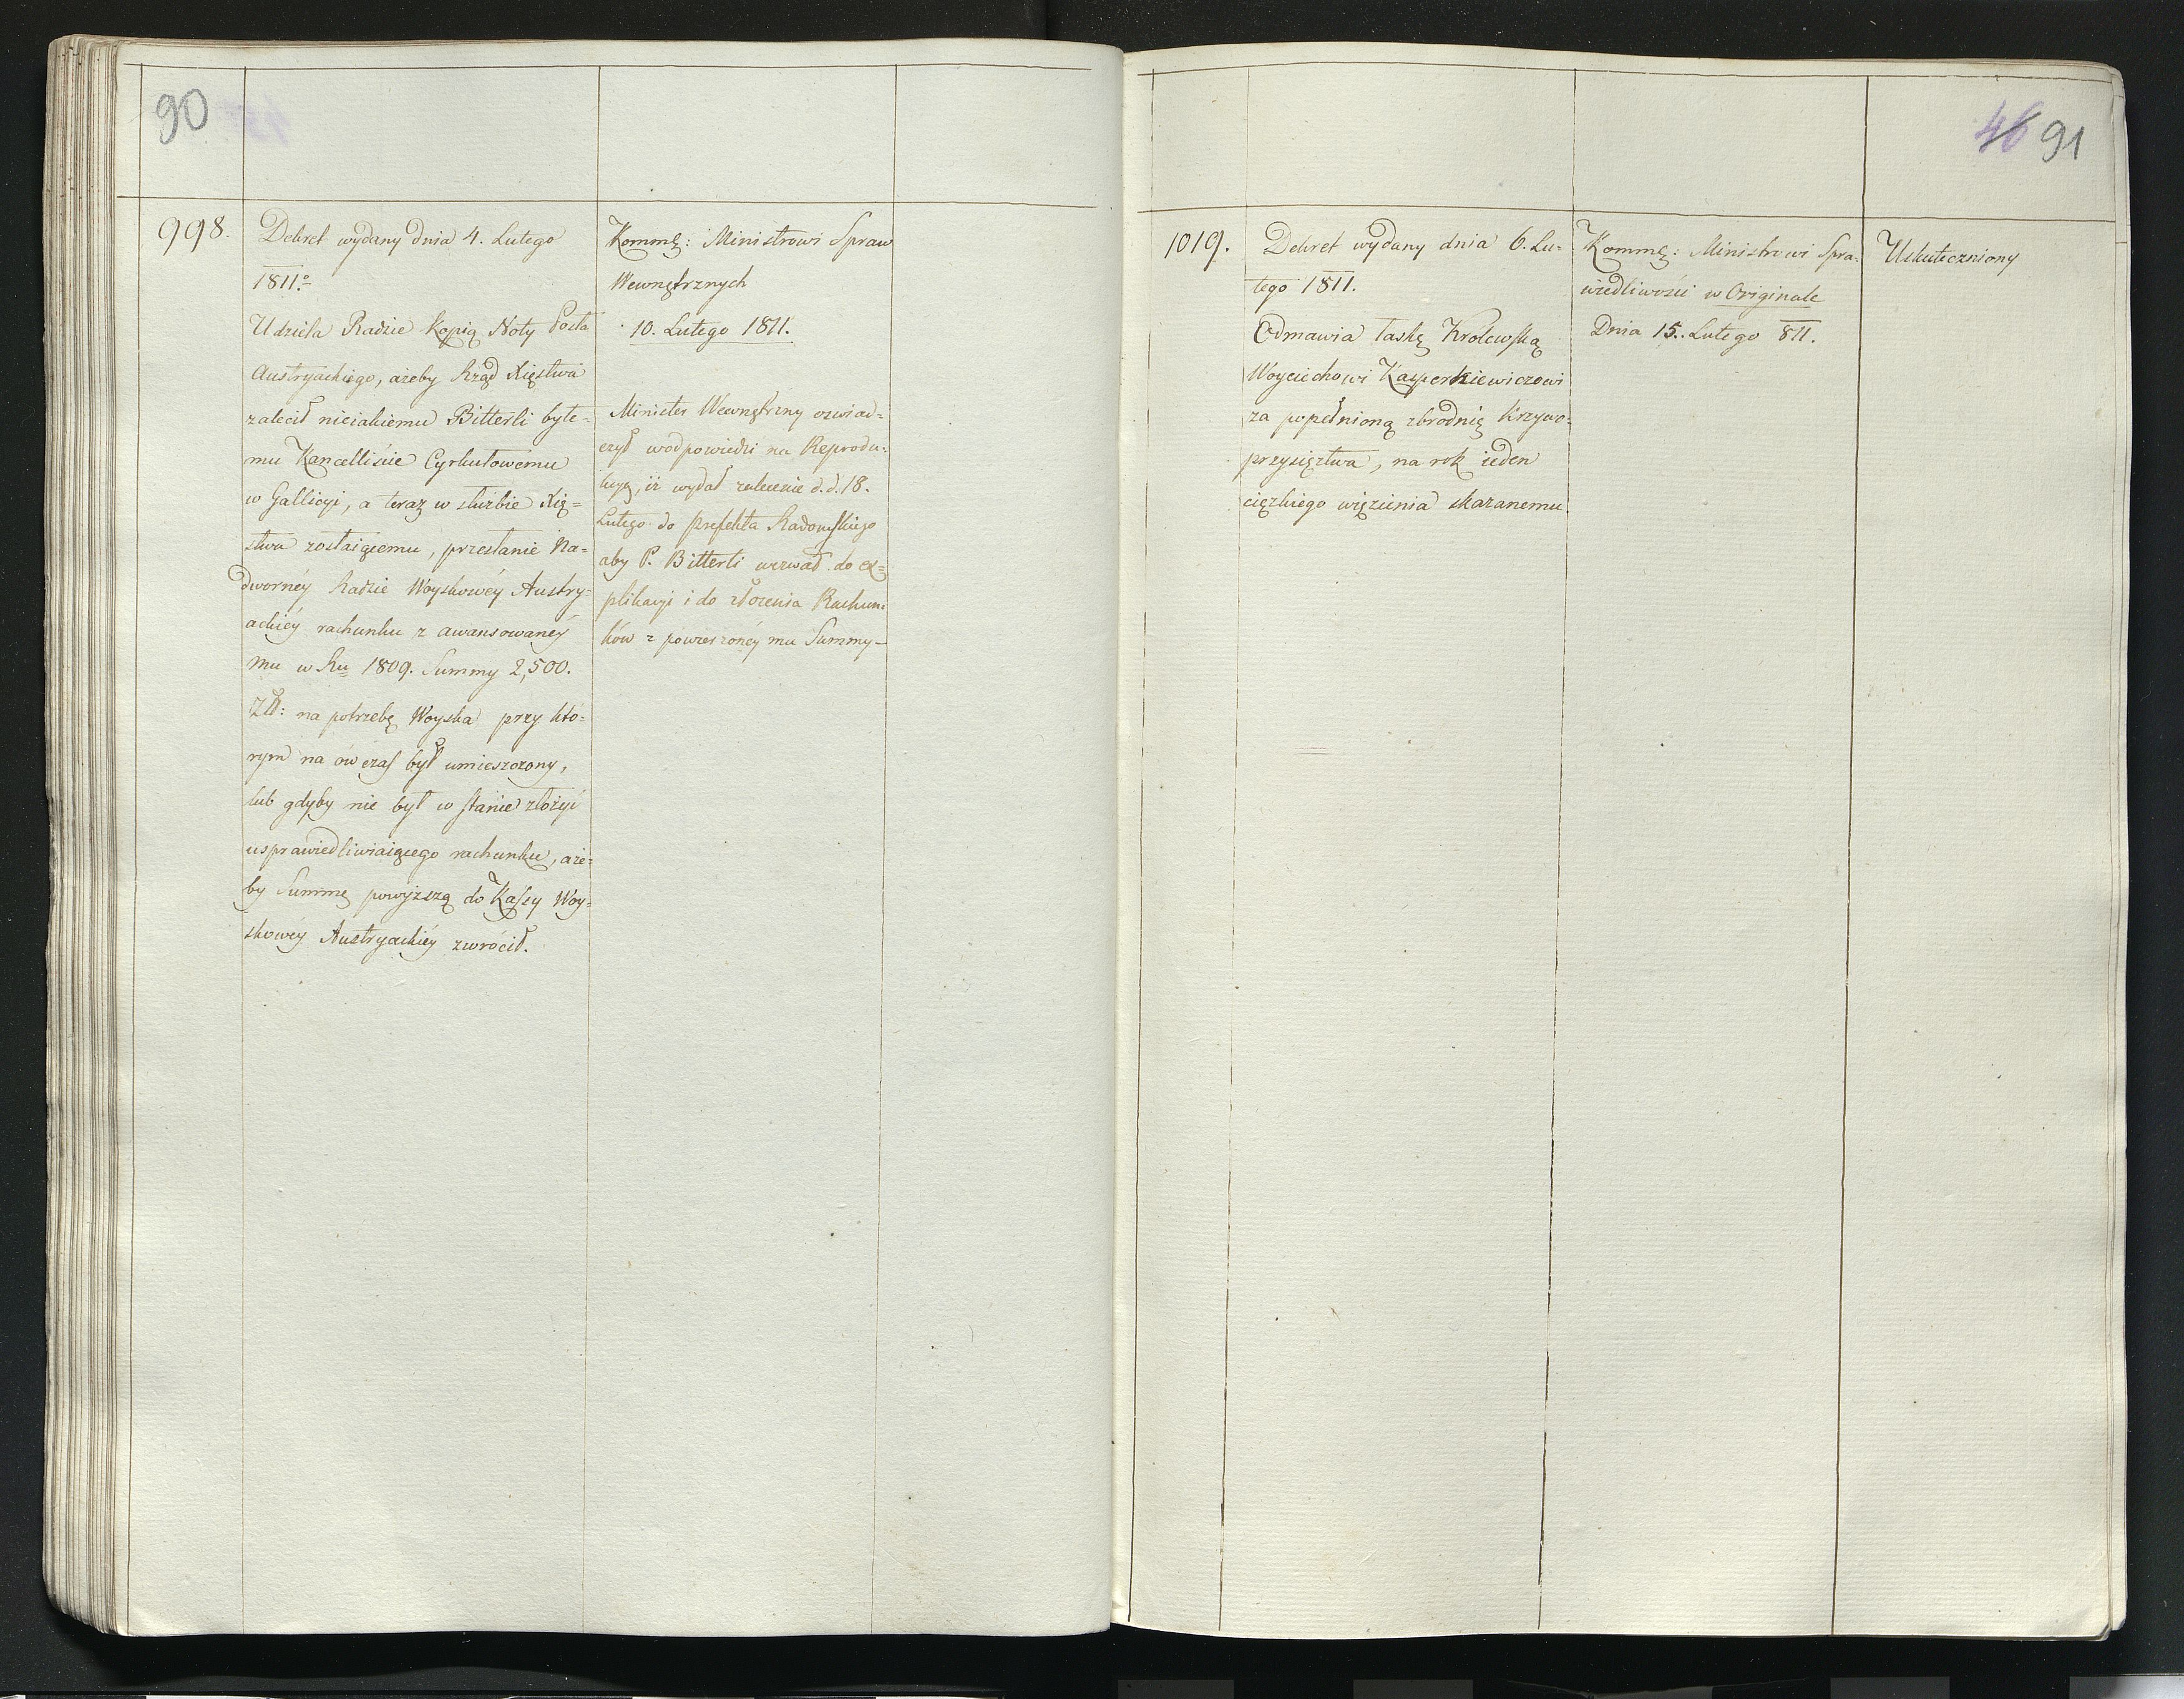 90
998.
Dekret wydany dnia 4. Lutego
1811.o
Udziela Radzie kopią Noty Posła
Austryackiego, ażeby Rząd Xięstwa
zalecił nieiakiemu Bitterli byłe=
mu Kancelliście Cyrkułowemu
w Gallicyi, a teraz w służbie Xię=
stwa zostaiącemu, przesłanie Na=
dwornéy Radzie Woyskowéy Austry=
ackiéy rachunku z awansowanéy
mu w Ru 1809. Summy 2,500.
Zł: na potrzebę Woyska przy któ=
rym na ów czas był umieszczony,
lub gdyby nie był w stanie złożyć
usprawiedliwiaiącego rachunku, aże=
by Summę powyższą do Kassy Woy=
skowéy Austryackiéy zwrócił.
Kommę: Ministrowi Spraw
Wewnętrznych
10. Lutego 1811.
Minister Wewnętrzny oświad=
czył w odpowiedzi na Reprodu=
kcyę, iż wydał zalecenie d.d. 18.
Lutego do Prefekta Radomskiego
aby P. Bitterli wezwał do ex=
plikacyi i do złożenia Rachun=
ków z powierzonéy mu Summy—
46 91
1019.
Dekret wydany dnia 6. Lu=
tego 1811.
Odmawia łaskę Krolewską
Woyciechowi Kasperkiewiczowi
za popełnioną zbrodnię krzywo=
przysięztwa, na rok ieden
ciężkiego więzienia skazanemu.
Kommę: Ministrowi Spra=
wiedliwości w Originale
Dnia 15. Lutego 811.
Uskuteczniony